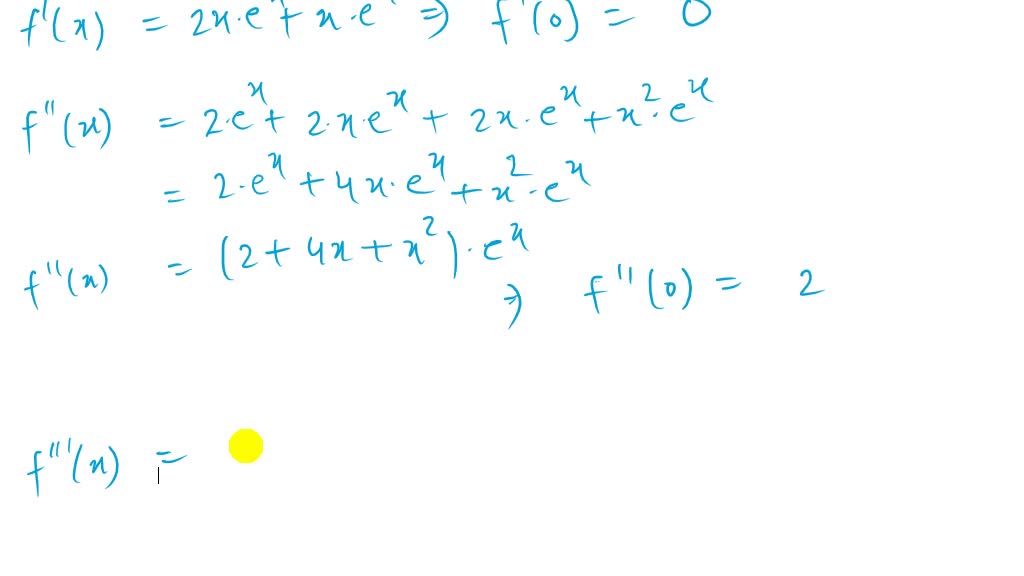 f'(x) = 2x·e + x·e ⇒ f'(0) = 0
f''(x) = 2·e^x + 2·x·e^x + 2x·e^x + x^2·e^x
= 2·e^x + 4x·e^x + x^2·e^x
f''(x) = (2 + 4x + x^2)·e^x
⇒ f''(0) = 2
f'''(x) =